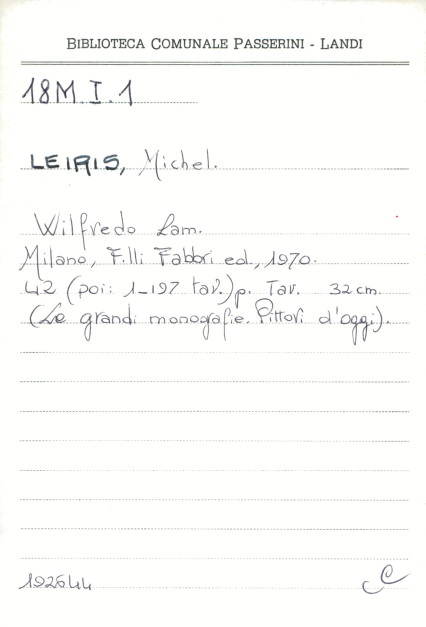 BIBLIOTECA COMUNALE PASSERINI - LANDI
18M.I.1
LEIRIS, Michel.
Wilfredo Lam.
Milano, F.lli Fabbri ed., 1970.
42 (poi: 1-197 tav.) p. Tav. 32 cm.
(Le grandi monografie. Pittori d'oggi).
192644